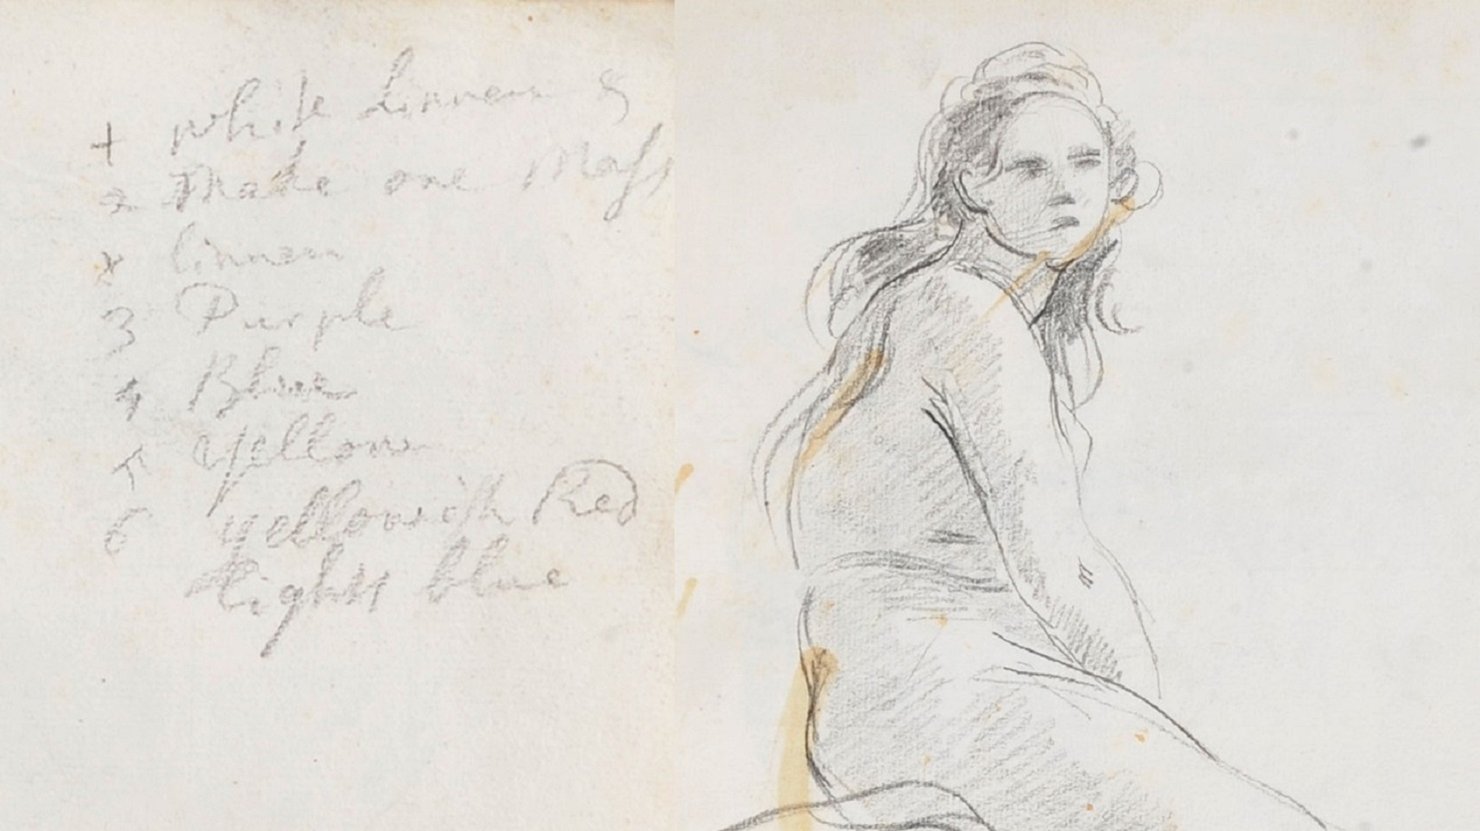 + white Linnen &
2 Make one Mass
x linnen
3 Purple
4 Blue
5 yellow
6 yellowish Red
light blue